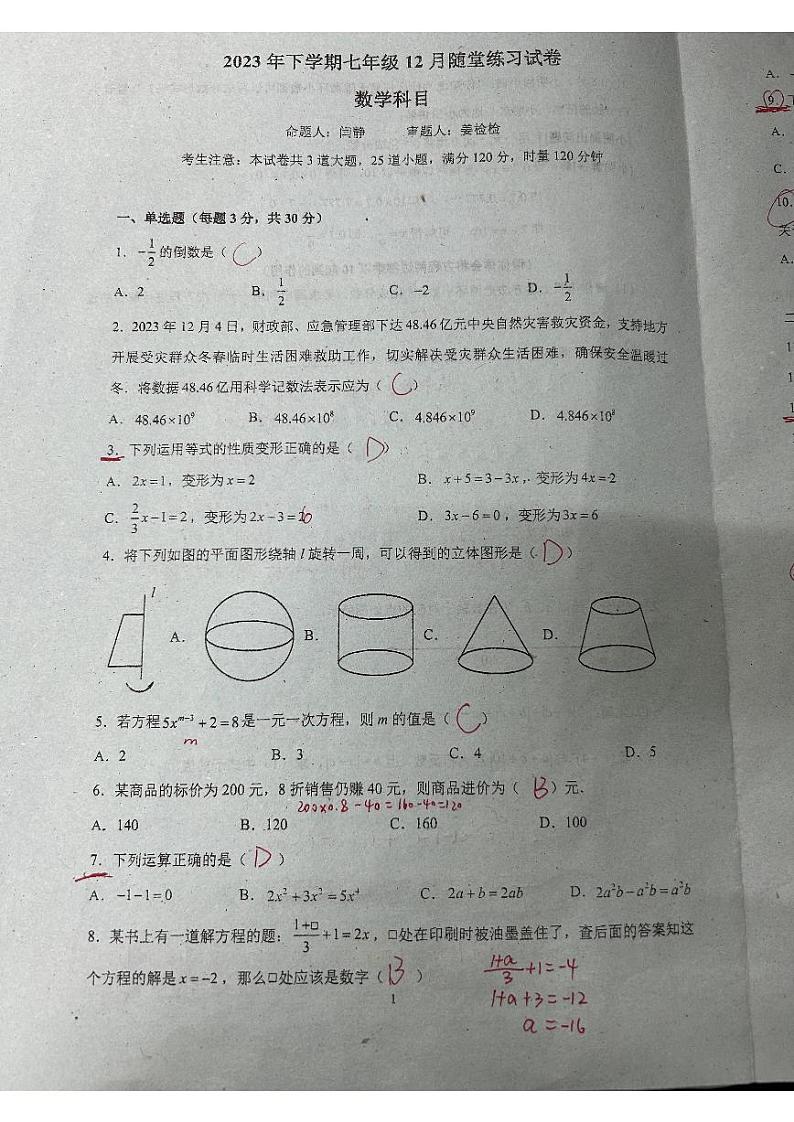 2023 年下学期七年级 12 月随堂练习试卷
数学科目
命题人：闫静 审题人：姜检检
考生注意：本试卷共 3 道大题，25 道小题，满分 120 分，时量 120 分钟
一、单选题（每题 3 分，共 30 分）
1．-1/2 的倒数是（ C ）
A．2 B．1/2 C．-2 D．-1/2
2．2023 年 12 月 4 日，财政部、应急管理部下达 48.46 亿元中央自然灾害救灾资金，支持地方
开展受灾群众冬春临时生活困难救助工作，切实解决受灾群众生活困难，确保安全温暖过
冬．将数据 48.46 亿用科学记数法表示应为（ C ）
A．48.46×10⁹ B．48.46×10⁸ C．4.846×10⁹ D．4.846×10⁸
3．下列运用等式的性质变形正确的是（ D ）
A．2x=1，变形为 x=2 B．x+5=3-3x，变形为 4x=2
C．2/3x-1=2，变形为 2x-3=6 D．3x-6=0，变形为 3x=6
4．将下列如图的平面图形绕轴 l 旋转一周，可以得到的立体图形是（ D ）
l
A． B． C． D．
5．若方程 5xᵐ⁻³+2=8 是一元一次方程，则 m 的值是（ C ）
m
A．2 B．3 C．4 D．5
6．某商品的标价为 200 元，8 折销售仍赚 40 元，则商品进价为（ B ）元．
200×0.8-40=160-40=120
A．140 B．120 C．160 D．100
7．下列运算正确的是（ D ）
A．-1-1=0 B．2x²+3x²=5x⁴ C．2a+b=2ab D．2a²b-a²b=a²b
8．某书上有一道解方程的题：(1+□)/3+1=2x，□处在印刷时被油墨盖住了，查后面的答案知这
个方程的解是 x=-2，那么□处应该是数字（ B ）
(1+a)/3+1=-4
1+a+3=-12
a=-16
1
A．
9．
A．
C．
10．
A．